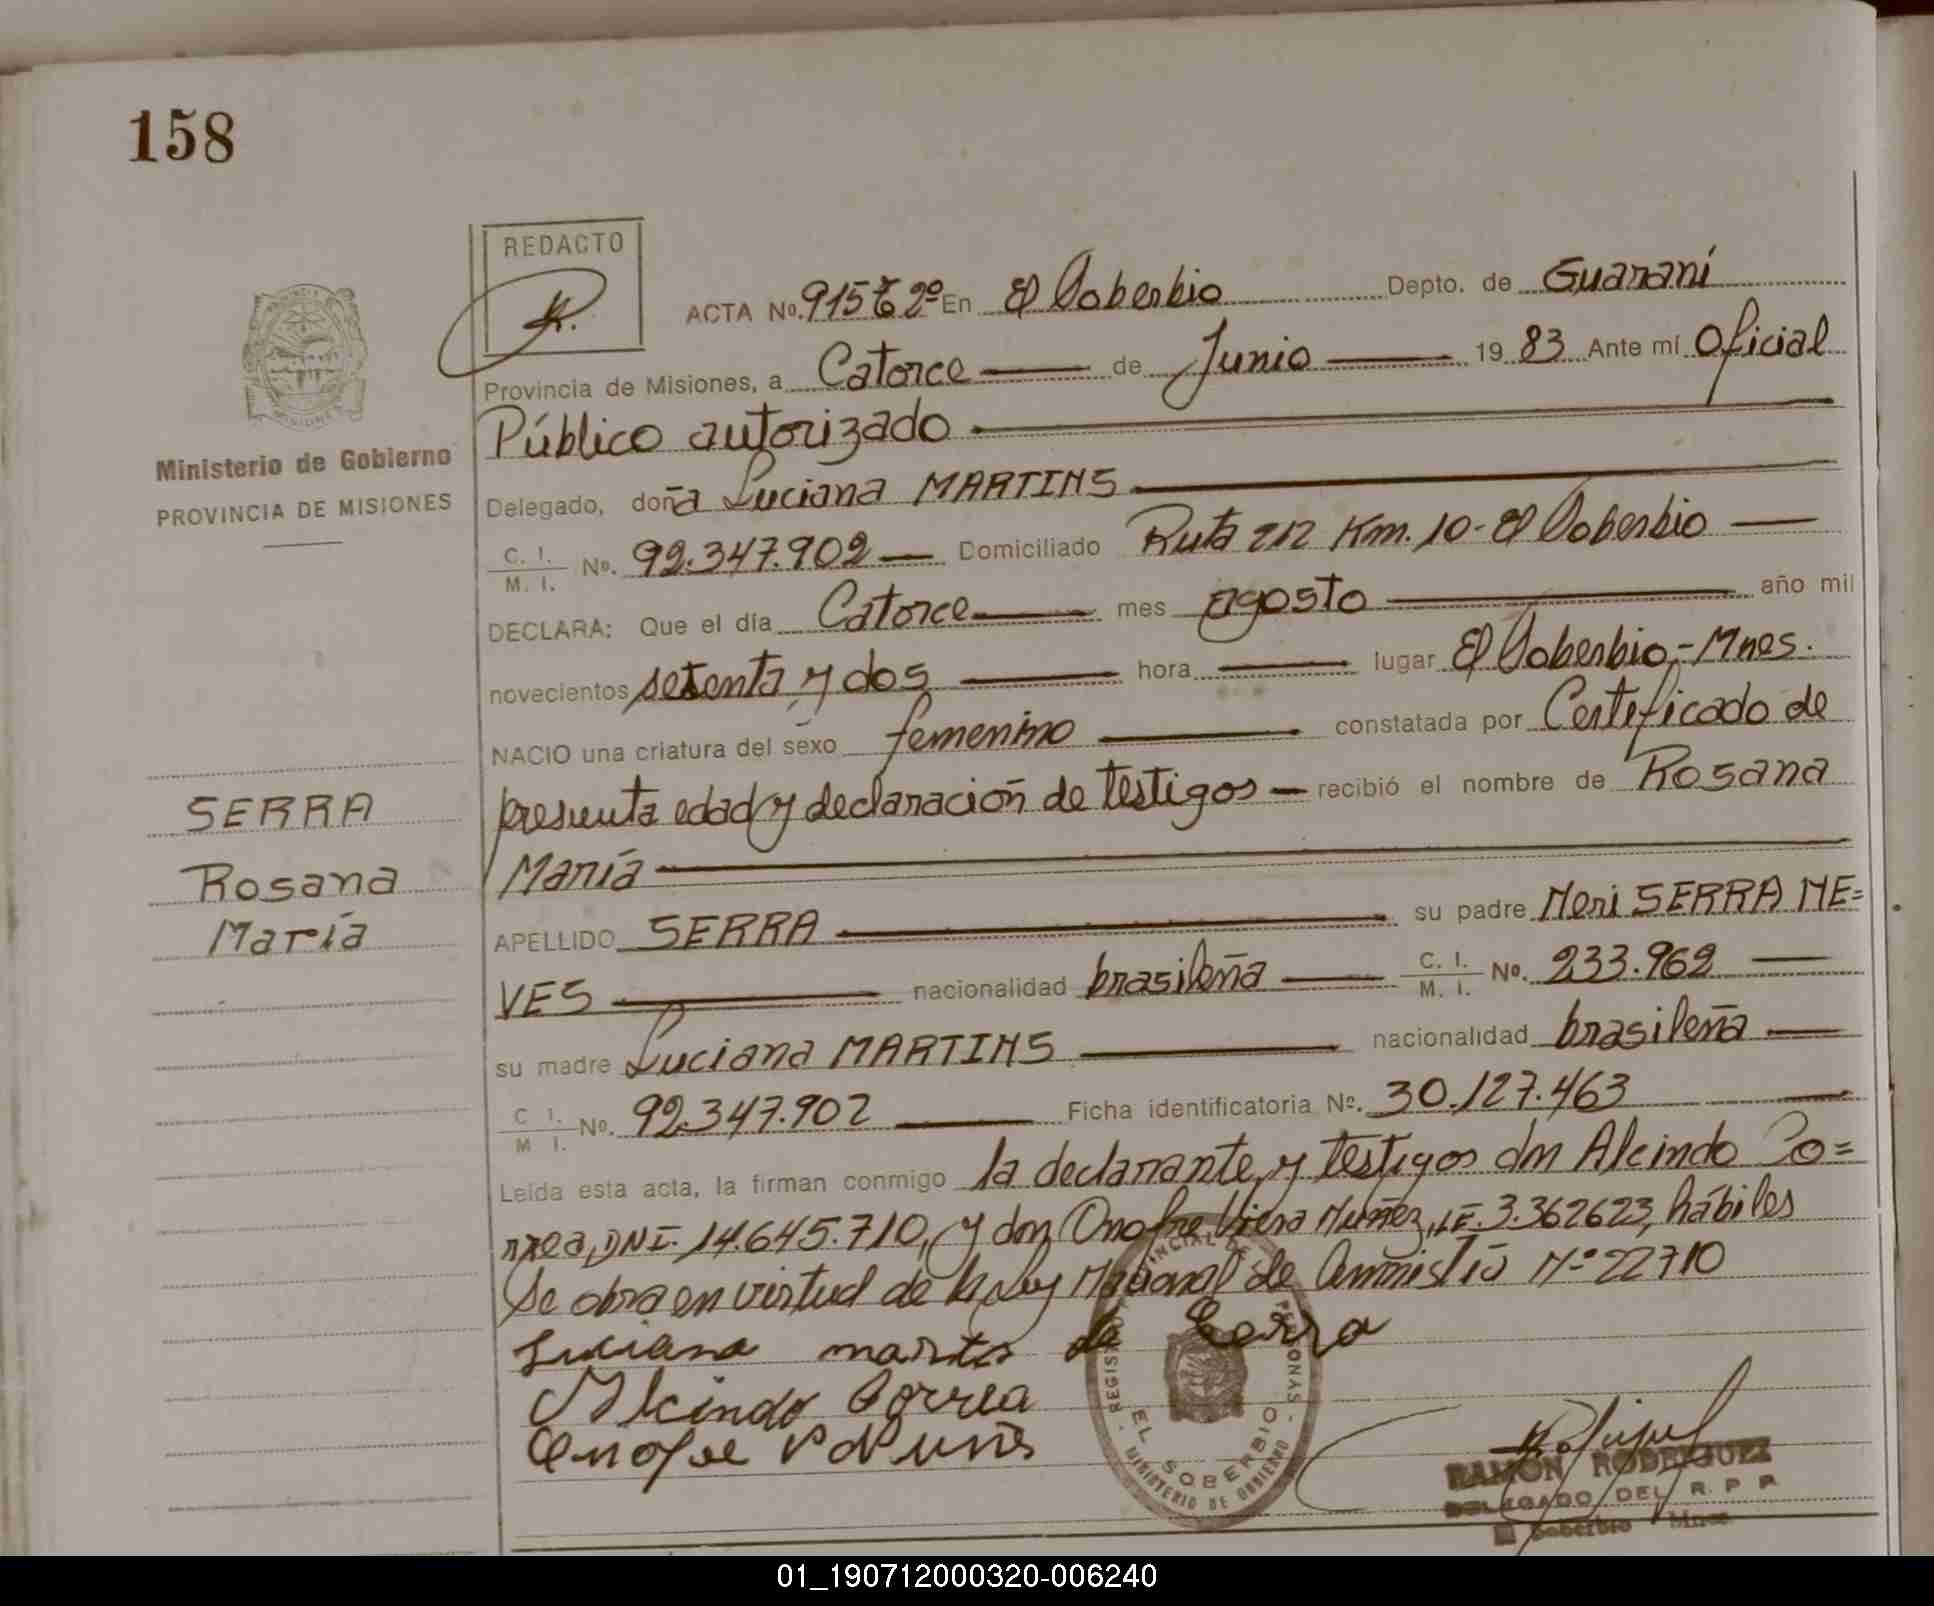 158
REDACTO
ACTA No. 915 Tº 2º En El Soberbio Depto. de Guaraní
Provincia de Misiones, a Catorce de Junio 19 83 Ante mí Oficial
Público autorizado
Ministerio de Gobierno
PROVINCIA DE MISIONES
Delegado, doña Luciana MARTINS
C. I. / M. I. No. 92.347.902 Domiciliado Ruta 212 Km. 10- El Soberbio
DECLARA: Que el día Catorce mes agosto año mil
novecientos setenta y dos hora lugar El Soberbio,- Mnes.
NACIO una criatura del sexo femenino constatada por Certificado de
presunta edad y declaración de testigos recibió el nombre de Rosana
María
SERRA
Rosana
María
APELLIDO SERRA su padre Neri SERRA NE=
VES nacionalidad brasileña C. I. / M. I. No. 233.962
su madre Luciana MARTINS nacionalidad brasileña
C I. / M I. No. 92.347.902 Ficha identificatoria No. 30.127.463
Leída esta acta, la firman conmigo la declarante, y testigos don Alcindo Co=
rrea, DNI. 14.645.710, y don Onofre Viera Nuñez, LE. 3.362623, hábiles
Se obra en virtud de la Ley Nacional de Amnistía Nº 22710
Luciana marts de Cerra
Alcindo Correa
Onofre
EL SOBERBIO
MINISTERIO DE GOBIERNO
RAMON RODRIGUEZ
DELEGADO DEL R. P. P.
El Soberbio Mnes
01_190712000320-006240